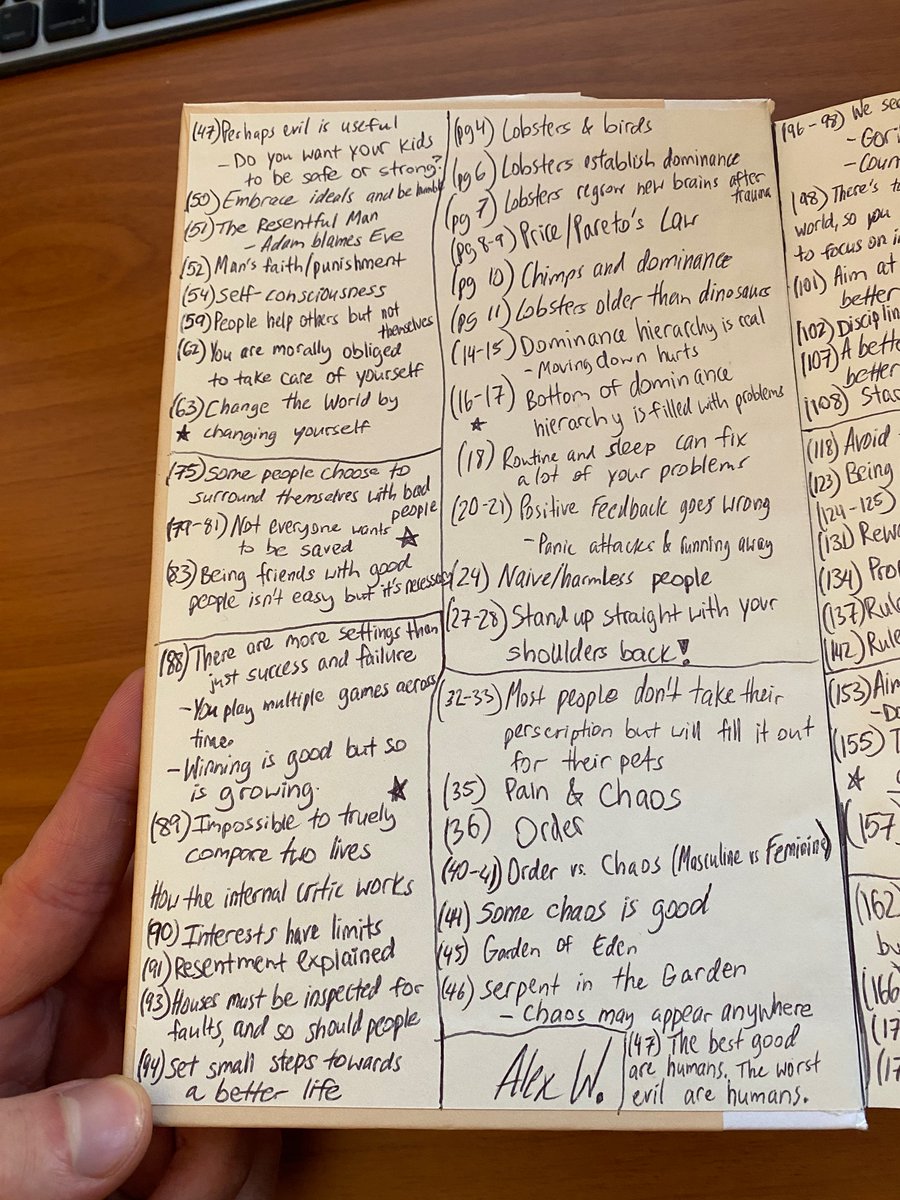 (47) Perhaps evil is useful
- Do you want your kids
to be safe or strong?
(50) Embrace ideals and be humble
(51) The Resentful Man
- Adam blames Eve
(52) Man's faith/punishment
(54) Self-consciousness
(59) People help others but not
themselves
(62) You are morally obliged
to take care of yourself
(63) Change the World by
★ changing yourself
(75) Some people choose to
surround themselves with bad
people
(79-81) Not everyone wants
to be saved ★
(83) Being friends with good
people isn't easy but it's necessary
(88) There are more settings than
just success and failure
- You play multiple games across
time.
- Winning is good but so
is growing. ★
(89) Impossible to truely
compare two lives
How the internal critic works
(90) Interests have limits
(91) Resentment explained
(93) Houses must be inspected for
faults, and so should people
(94) Set small steps towards
a better life
(pg 4) Lobsters & birds
(pg 6) Lobsters establish dominance
(pg 7) Lobsters regrow new brains after
trauma
(pg 8-9) Price/Pareto's Law
(pg 10) Chimps and dominance
(pg 11) Lobsters older than dinosaurs
(14-15) Dominance hierarchy is real
- Moving down hurts
(16-17) Bottom of dominance
★ hierarchy is filled with problems
(18) Routine and sleep can fix
a lot of your problems
(20-21) Positive Feedback goes wrong
- Panic attacks & running away
(24) Naive/harmless people
(27-28) Stand up straight with your
shoulders back!
(32-33) Most people don't take their
perscription but will fill it out
for their pets
(35) Pain & Chaos
(36) Order
(40-41) Order vs. Chaos (Masculine vs Feminine)
(44) Some chaos is good
(45) Garden of Eden
(46) Serpent in the Garden
- Chaos may appear anywhere
Alex W.
(47) The best good
are humans. The worst
evil are humans.
(96-98) We
(98) There's
world, so you
to focus on
(101) Aim at
better
(102)
(107) A
better
(108)
(118) Avoid
(123) Being
(124-125)
(131)
(134)
(137)
(142)
(153)
(155)
★
(157)
(162)
(166)
command